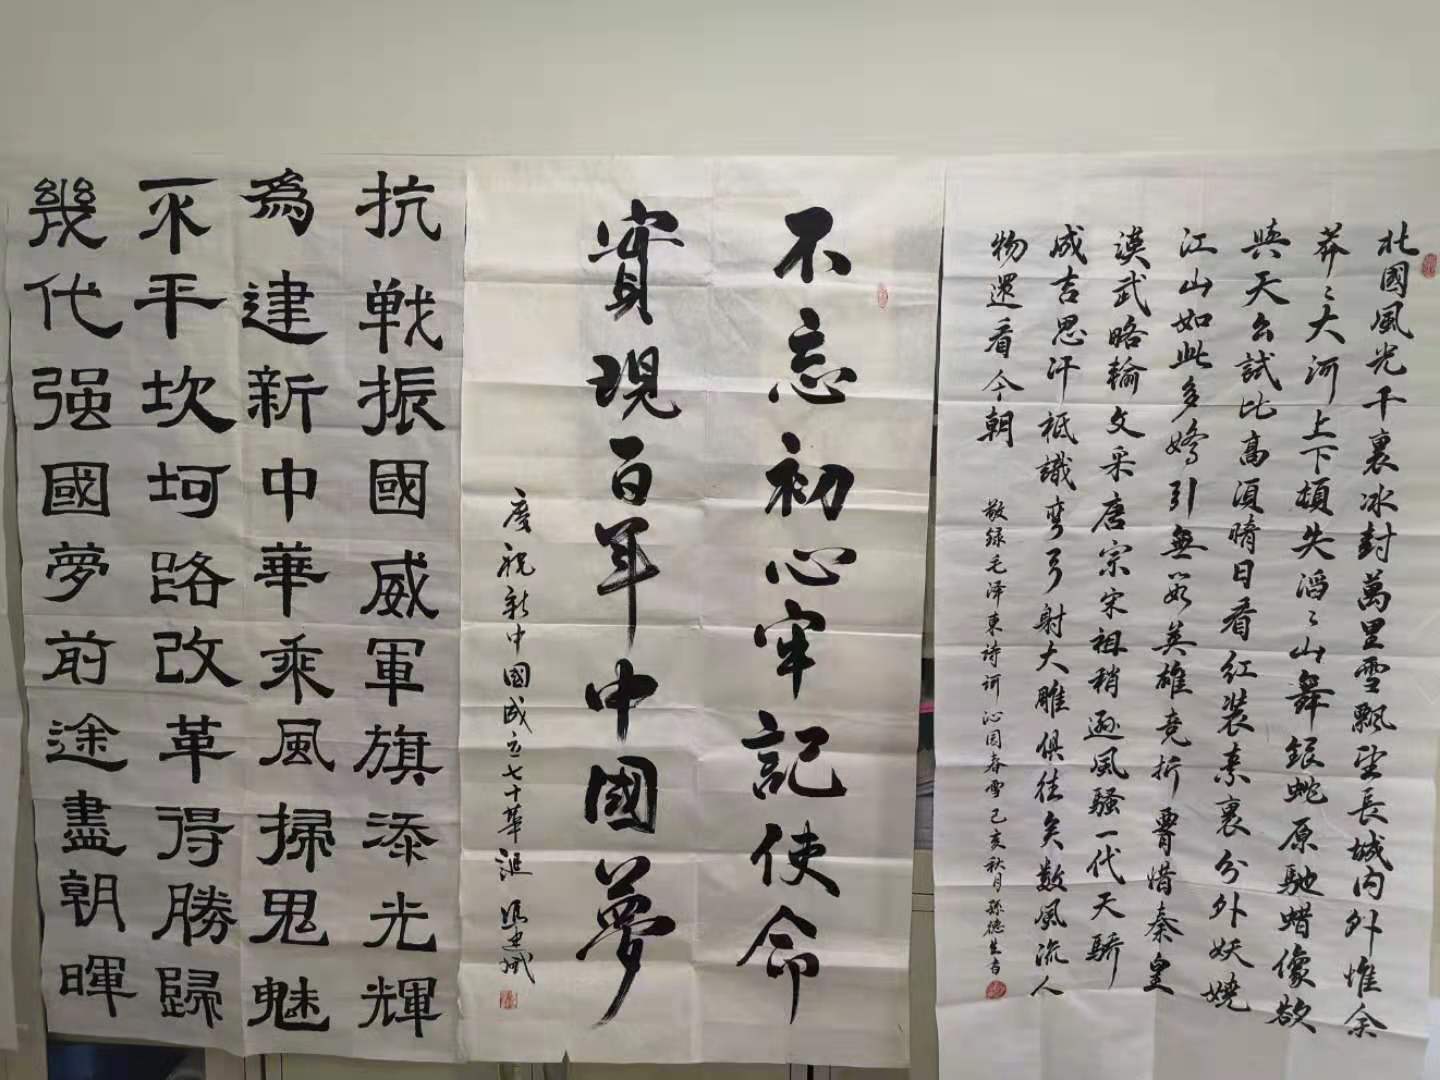 北國風光千裏冰封萬里雪飄望長城内外惟余
莽〻大河上下頓失滔〻山舞銀蛇原馳蜡像欲
與天公試比高須晴日看红装素裏分外妖嬈
江山如此多嬌引無数英雄竞折要惜秦皇
漢武略输文采唐宗宋祖稍逊風騷一代天骄
成吉思汗祗識弯弓射大雕俱往矣数風流人
物還看今朝
敬録毛泽東詩词沁园春雪己亥秋月孫德生書
不忘初心牢記使命
實現百年中國夢
慶祝新中國成立七十華诞
抗戰振國威軍旗添光輝
為建新中華乘風掃鬼魅
不平坎坷路改革得勝歸
幾代强國夢前途盡朝暉